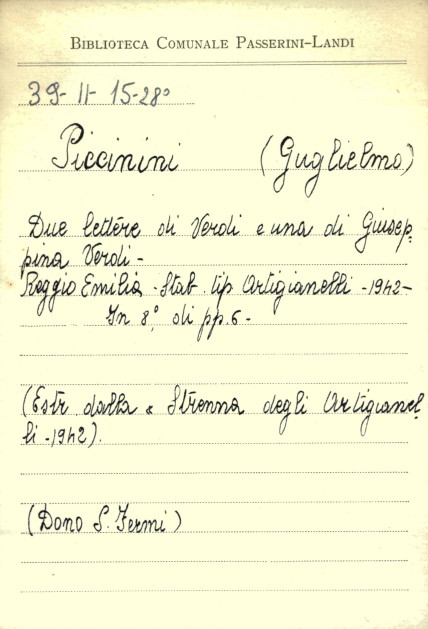 BIBLIOTECA COMUNALE PASSERINI-LANDI
39-II-15-28°
Piccinini (Guglielmo)
Due lettere di Verdi e una di Giusep=
pina Verdi -
Reggio Emilia - Stab. tip. Artigianelli - 1942 -
In 8°, di pp. 6 -
(Estr. dalla « Strenna degli Artigianel=
li - 1942).
(Dono S. Fermi)